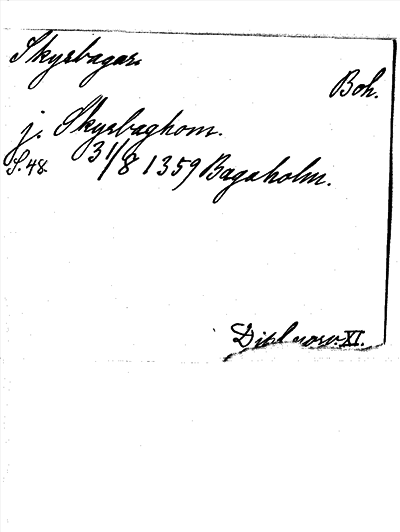 Skyrbagar.
Boh.
j. Skyrbaghom.
S. 48. 31/8 1359 Bagaholm.
Dipl norv. XI.